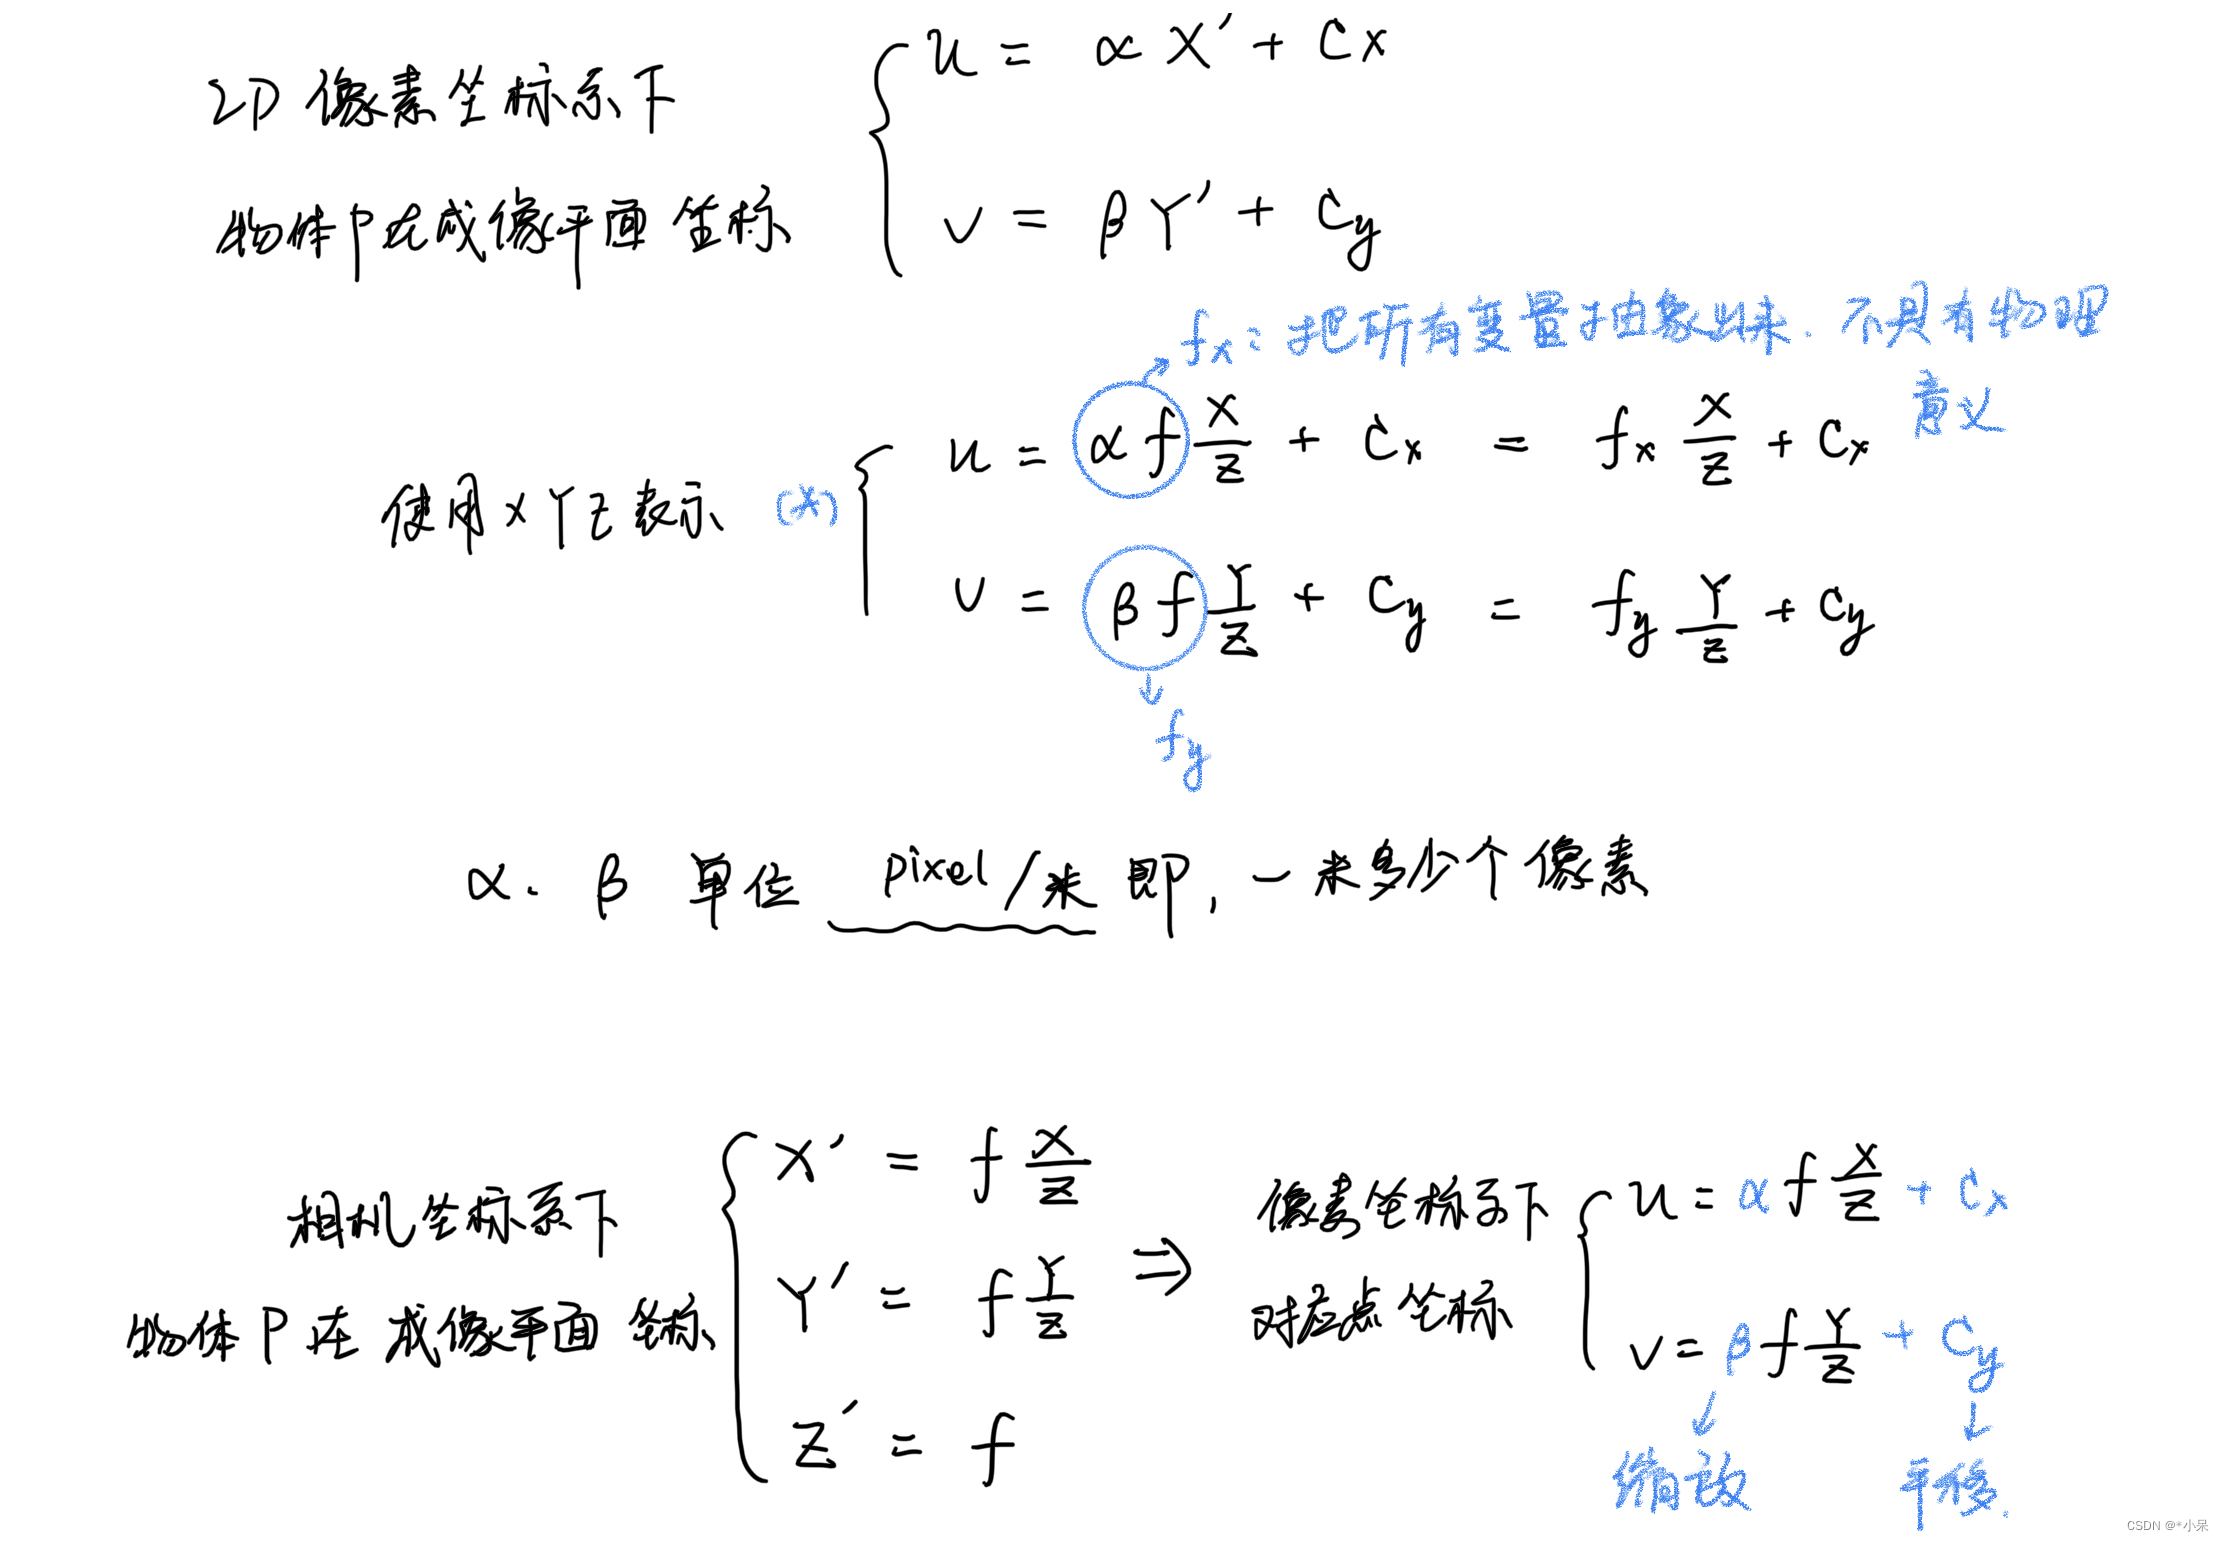 2D 像素坐标系下
物体P在成像平面坐标
u = αX' + Cx
v = βY' + Cy
fx：把所有变量抽象出来．不具有物理
意义
使用XYZ表示 (*)
u = αf X/Z + Cx = fx X/Z + Cx
v = βf Y/Z + Cy = fy Y/Z + Cy
fy
α、β 单位 pixel/米 即，一米多少个像素
相机坐标系下
物体P在成像平面坐标
X' = f X/Z
Y' = f Y/Z
Z' = f
⇒
像素坐标系下
对应点坐标
u = αf X/Z + Cx
v = βf Y/Z + Cy
缩放
平移.
CSDN @*小呆